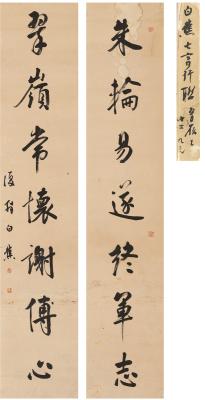 朱輪易遂終軍志
翠嶺常懷謝傅心
復翁白蕉
白蕉七言行聯